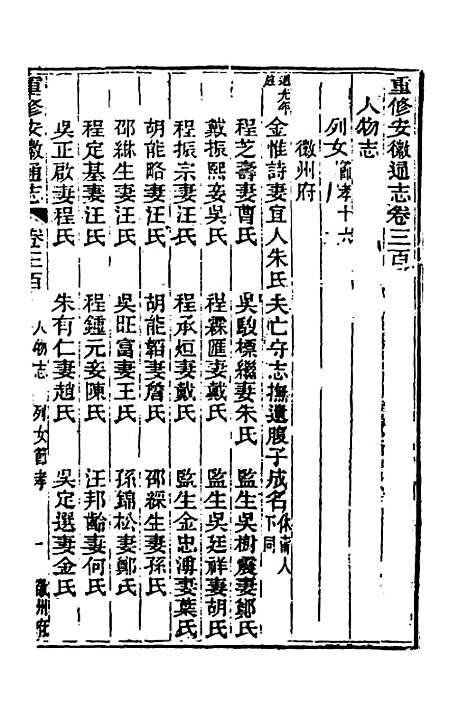 重修安徽通志卷三百
人物志
列女節孝十六
徽州府
道光年
金惟詩妻宜人朱氏夫亡守志撫遺腹子成名休甯人下同
程芝壽妻曹氏 吳駿標繼妻朱氏 監生吳樹震妻鄭氏
戴振熙妾吳氏 程霖匯妻戴氏 監生吳廷祥妻胡氏
程振宗妻汪氏 程承烜妻戴氏 監生金忠溥妻葉氏
胡能略妻汪氏 胡能韜妻詹氏 邵綵生妻孫氏
邵綝生妻汪氏 吳旺富妻王氏 孫錦松妻鄭氏
程定基妻汪氏 程鍾元妾陳氏 汪邦齡妻何氏
吳正啟妻程氏 朱有仁妻趙氏 吳定選妻金氏
重修安徽通志 卷三百 人物志 列女節孝 一 徽州府